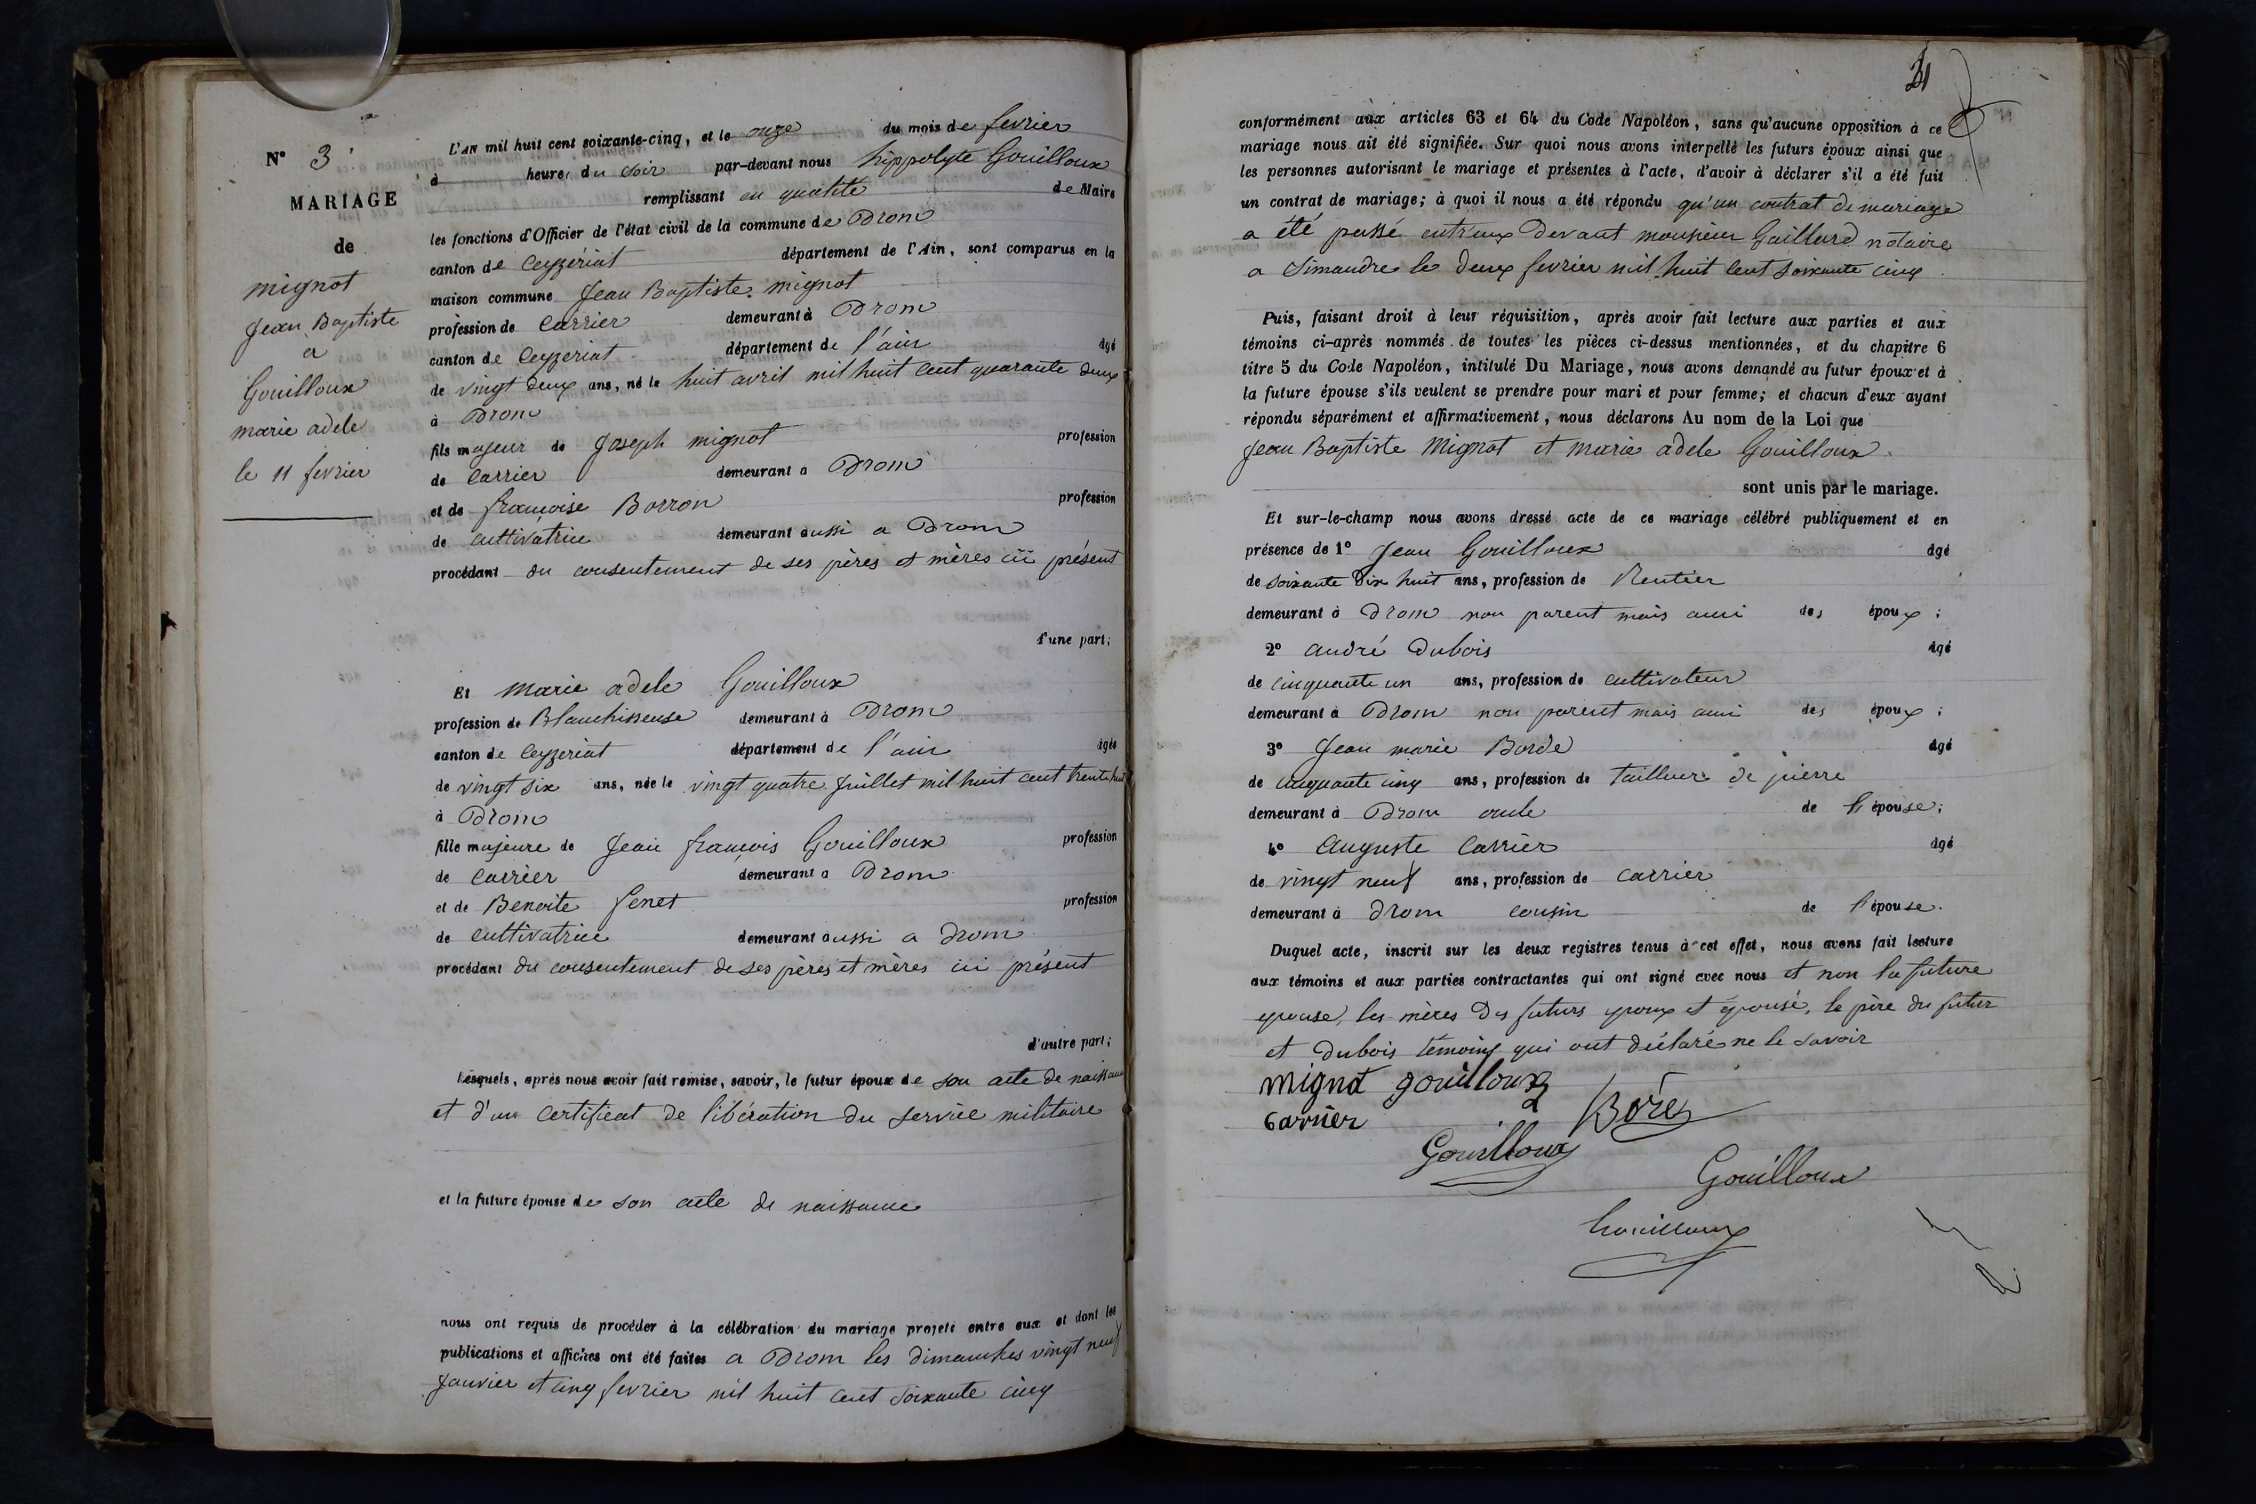 N° 3
MARIAGE
de
mignot
Jean Baptiste
à
Gouilloux
marie adele
le 11 fevrier
L'AN mil huit cent soixante-cinq, et le onze du mois de fevrier
à heure du soir par-devant nous hippolyte Gouilloux
remplissant en qualité de Maire
les fonctions d'Officier de l'état civil de la commune de Drom
canton de Ceyzériat département de l'Ain, sont comparus en la
maison commune Jean Baptiste mignot
profession de Carrier demeurant à Drom
canton de Ceyzeriat département de l'ain âgé
de vingt deux ans, né le huit avril mil huit cent quarante deux
à Drom
fils majeur de Joseph mignot profession
de Carrier demeurant a Drom
et de francoise Borron profession
de cultivatrice demeurant aussi a Drom
procédant du consentement de ses pères et mères ici présent
d'une part;
Et marie adele Gouilloux
profession de Blanchisseuse demeurant à Drom
canton de Ceyzeriat département de l'ain âgée
de vingt six ans, née le vingt quatre juillet mil huit cent trente huit
à Drom
fille majeure de Jean francois Gouilloux profession
de Carrier demeurant a Drom
et de Benoite fenet profession
de cultivatrice demeurant aussi a Drom
procédant du consentement de ses pères et mères ici présent
d'autre part;
Lesquels, après nous avoir fait remise, savoir, le futur époux de son acte de naissance
et d'un Certificat de libération du service militaire
et la future épouse de son acte de naissance
nous ont requis de procéder à la célébration du mariage projeté entre eux et dont les
publications et affiches ont été faites a Drom les dimanches vingt neuf
Janvier et cinq fevrier mil huit cent soixante cinq
21
conformément aux articles 63 et 64 du Code Napoléon, sans qu'aucune opposition à ce
mariage nous ait été signifiée. Sur quoi nous avons interpellé les futurs époux ainsi que
les personnes autorisant le mariage et présentes à l'acte, d'avoir à déclarer s'il a été fait
un contrat de mariage; à quoi il nous a été répondu qu'un contrat de mariage
a été passé entreux devant monsieur Gaillard notaire
a Simandre le deux fevrier mil huit cent soixante cinq
Puis, faisant droit à leur réquisition, après avoir fait lecture aux parties et aux
témoins ci-après nommés de toutes les pièces ci-dessus mentionnées, et du chapitre 6
titre 5 du Code Napoléon, intitulé Du Mariage, nous avons demandé au futur époux et à
la future épouse s'ils veulent se prendre pour mari et pour femme; et chacun d'eux ayant
répondu séparément et affirmativement, nous déclarons Au nom de la Loi que
Jean Baptiste Mignot et marie adele Gouilloux
sont unis par le mariage.
Et sur-le-champ nous avons dressé acte de ce mariage célébré publiquement et en
présence de 1° Jean Gouilloux âgé
de soixante dix huit ans, profession de Rentier
demeurant à Drom non parent mais ami des époux;
2° andré Dubois âgé
de cinquante un ans, profession de cultivateur
demeurant à Drom non parent mais ami des époux;
3° Jean marie Borde âgé
de cinquante cinq ans, profession de tailleur de pierre
demeurant à Drom oncle de l'épouse;
4° Auguste Carrier âgé
de vingt neuf ans, profession de Carrier
demeurant à Drom cousin de l'épouse.
Duquel acte, inscrit sur les deux registres tenus à cet effet, nous avons fait lecture
aux témoins et aux parties contractantes qui ont signé avec nous et non la future
epouse, les mères des futurs epoux et épousé, le père du futur
et Dubois témoins qui ont déclaré ne le savoir
mignot gouilloux
Carrier
Gouilloux
Gouilloux
Gouilloux